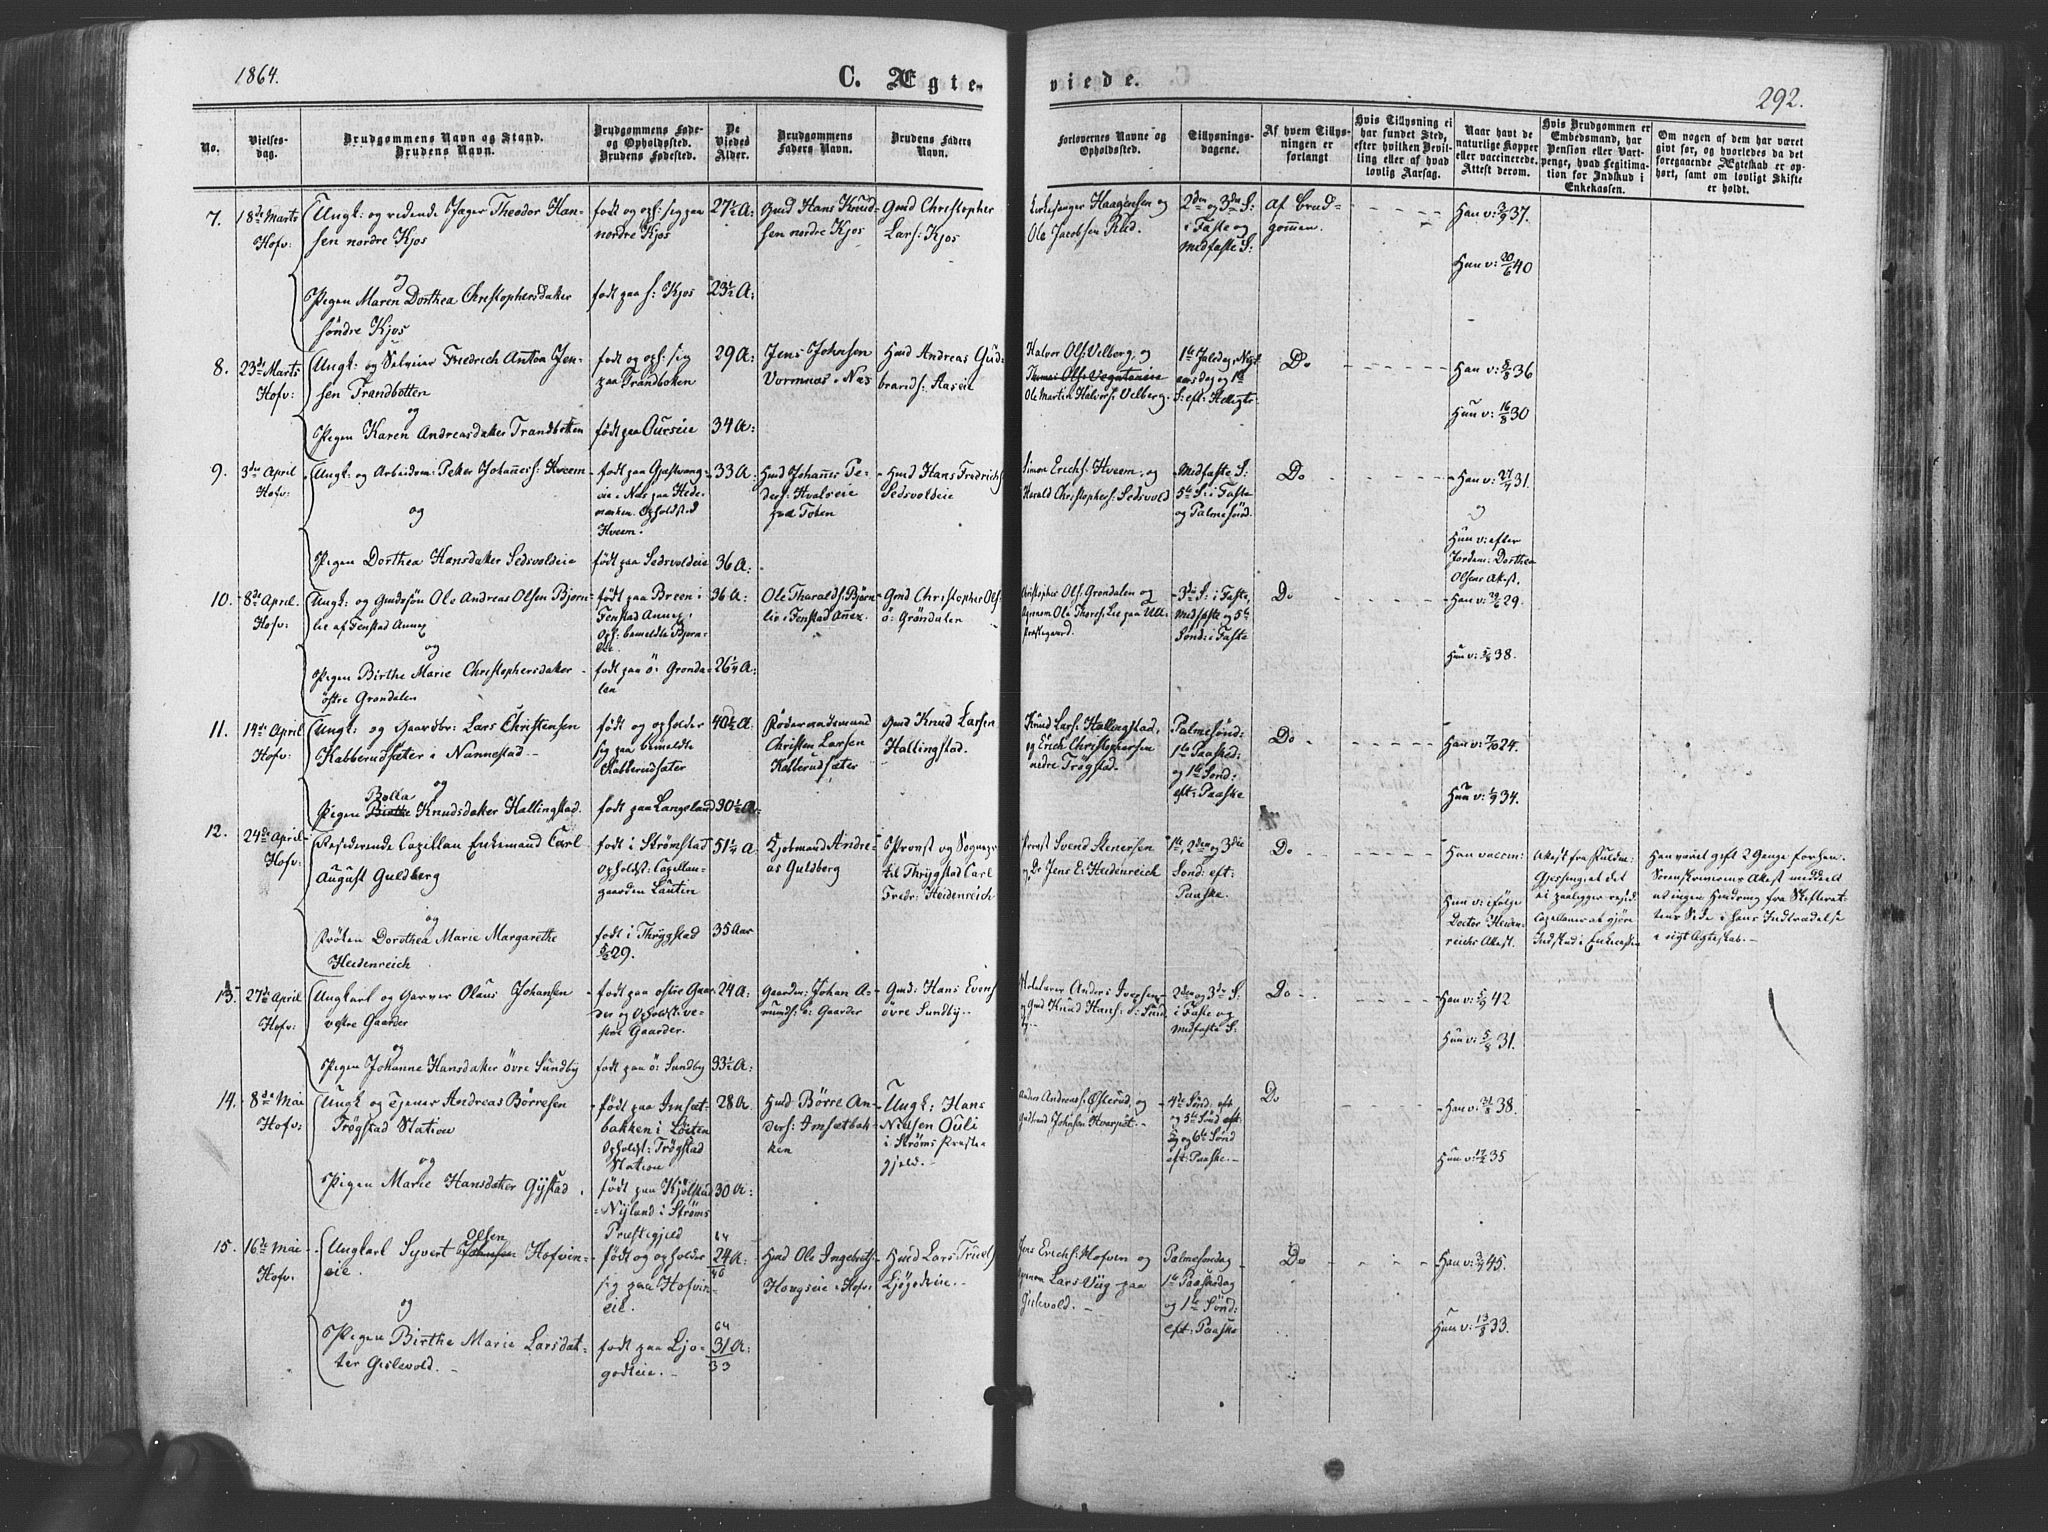 1864.
C. Ægte-
viede.
292.
No.
Vielses-
dag.
Brudgommens Navn og Stand.
Brudens Navn.
Brudgommens Føde-
og Opholdssted.
Brudens Fødested.
De
Viedes
Alder.
Brudgommens
Faders Navn.
Brudens Faders
Navn.
Forlovernes Navne og
Opholdssted.
Tillysnings-
dagene.
Af hvem Tillys-
ningen er
forlangt
Hvis Tillysning ei
har fundet Sted,
efter hvilken Bevil-
ling eller af hvad
lovlig Aarsag.
Naar havt de
naturlige Kopper
eller vaccinerede.
Attest derom.
Hvis Brudgommen er
Embedsmand, har
Pension eller Vart-
penge, hvad Legitima-
tion for Indskud i
Enkekassen.
Om nogen af dem har været
givt før, og hvorledes da det
foregaaende Ægteskab er op-
hørt, samt om lovligt Skifte
er holdt.
7.
18de Marts
Hofv:
Ungk: og ridende Jæger Theodor Han-
sen nordre Kjos
og
Pigen Maren Dorthea Christophersdatter
søndre Kjos
født og oph: sig paa
nordre Kjos
født paa s: Kjos
27½ A:
23½ A:
Gmd Hans Knud-
sen nordre Kjos
Gmd Christopher
Lars: Kjos
Kirkesanger Haagensen og
Ole Jacobsen Rud.
2den og 3die S:
i Faste og
Midfaste S:
Af Brud-
gommen.
Han v: 3/9 37.
Hun v: 20/6 40
8.
23de Marts
Hofv:
Ungk: og Selveier Friedrich Anton Jen-
sen Trandbotten
og
Pigen Karen Andreasdatter Trandbotten
født og oph: sig
paa Trandboken
født paa Aurseie
29 A:
34 A:
Jens Johnsen
Vormnæs i Næs
Hmd Andreas Gud-
brands: Aaseie
Halvor Ols: Velberg, og
Ole Martin Halvors: Velberg.
1ste Juledag, Nyt-
aarsdag og 1ste
S: eft: Helligtr.
Do
Han v: 5/8 36
Hun v: 16/8 30
9.
3die April
Hofv:
Ungk: og Arbeidsm: Peter Johannes: Hveem
og
Pigen Dorthea Hansdatter Sedsvoldeie
født paa Gjestvang-
eie i Næs paa Hede-
marken. Opholdsted
Hveem.
født paa Sedsvoldeie
33 A:
36 A:
Hmd Johannes Pe-
ders: Hvalseie
paa Toten
Hmd Hans Fredrichs:
Sedsvoldeie
Simon Erichs: Hveem, og
Harald Christophers: Sedsvold
Midfaste S:
5te S: i Faste
og Palmesønd.
Do
Han v: 27/7 31.
og
Hun v: efter
Jordem: Dorthea
Olsens Attest.
10.
8de April.
Hofv:
Ungk: og Gmdssøn Ole Andreas Olsen Bjørn-
lie af Fenstad Annex
og
Pigen Birthe Marie Christophersdatter
østre Grøndalen
født paa Breen i
Fenstad Annex,
Oph: bemeldte Bjørn-
lie.
født paa ø: Grønda-
len
36 A:
26¼ A:
Ole Tharalds: Bjørn-
lie i Fenstad Anex.
Gmd Christopher Ols:
ø: Grøndalen
Christopher Ols: Grøndalen og
Ole Thores: Lie paa Ull-
3die S: i Faste,
Midfaste og 5te
Sønd: i Faste
Do
Han v: 29/6 29.
Hun v: 5/8 38.
11.
14de April
Hofv:
Ungk: og Gaardbr: Lars Christensen
Kabberudsæter i Nannestad
og
Bolla
Pigen Birthe Knudsdatter Hallingstad.
født og opholder
sig paa bemeldte
Kabberudsæter
født paa Langeland
40½ A.
30½ A:
Rødernadsmand
Christen Larsen
Kabberudsæter
Gmd Knud Larsen
Hallingstad.
Knud Lars: Hallingstad,
og Erich Christophersen
nedre Trøgstad.
Palmesønd:
1ste Paasked:
og 1ste Sønd:
eft: Paaske
Do
Han v: 7/10 24.
Hun v: 1/9 34.
12.
24de April
Hofv:
Residerende Capellan Enkemand Carl
August Guldberg
og
Frøken Dorothea Marie Margarethe
Heidenreich
født i Strømstad
Opholdst: Capellan-
gaarden Løuten
født i Thrygstad
5/2 29.
51¼ A
35 Aar
Kjøbmand Andre-
as Guldberg
Provst og Sognepr:
til Thrygstad Carl
Fredr: Heidenreich
Provst Svend Stenersen
og Dr Jens E. Heidenreich
1ste, 2den og 3die
Sønd: eft:
Paaske.
Do
Han vaccin:
Hun v: ifølge
Doctor Heiden-
reichs Attest.
Attest fra Fuldm:
Gjessing, at det
ei paaligger resid.
Capellaner at gjøre
Indskud i Enkekassen
Han været gift 2 Gange forhen.
Sorenskriverens Attest meddelt
at ingen Hindring fra Skifteret-
tens Side i hans Indtrædelse
i nyt Ægteskab.
13.
27de April
Hofv:
Ungkarl og Garver Olaus Johansen
vestre Gaarder
og
Pigen Johanne Hansdatter øvre Sundby
født paa østre Gaar-
der og Opholdst: ve-
stre Gaarder.
født paa ø: Sundby
24 A:
33½ A:
Gaardm: Johan A-
munds: ø: Gaarder
Gmd: Hans Evens:
øvre Sundby.
Anders Iversen
og Gmd Knud Hans: ø: Sund-
by.
2den og 3die S:
i Faste og
Midfaste S:
Do
Han v: 5/9 42
Hun v: 5/8 31.
14.
8de Mai
Hofv:
Ungk: og Tjener Andreas Børresen
Trøgstad Station
og
Pigen Marie Hansdatter Gystad
født paa Imsæt-
bakken i Løiten
Opholdst: Trøgstad
Station
født paa Kjølstad
Nyland i Strøms
Præstegjeld
28 A.
30 A:
Hmd Børre An-
ders: Imsætbak-
ken
Ungk: Hans
Nielsen Ouli
i Strøms Præste-
gjeld.
Anders Andreas: Østerud, og
Gudbrand Johnsen Kverpst.
4de Sønd: eft:
og 5te Sønd eft:
og 6te Sønd
eft: Paaske.
Do
Han v: 31/8 38.
Hun v: 17/2 35
15.
16de Mai
Hofv:
Olsen
Ungkarl Syvert Johnsen Hofvin-
eie.
og
Pigen Birthe Marie Larsdat-
ter Gislevold.
født og opholder
sig paa Hofvin-
eie.
født paa Ljø-
godteie.
64
24 A:
40
64
31 A:
33
Hmd Ole Ingebrets:
Haugseie i Hofv:
Hmd Lars Truels:
Ljøgodteie.
Jens Erichs: Hofvin og
Lars Viig paa
Gislevold.
Palmesøndag
1ste Paaskedag
og 1ste Sønd:
eft: Paaske
Do
Han v: 3/7 45.
Hun v: 13/8 33.